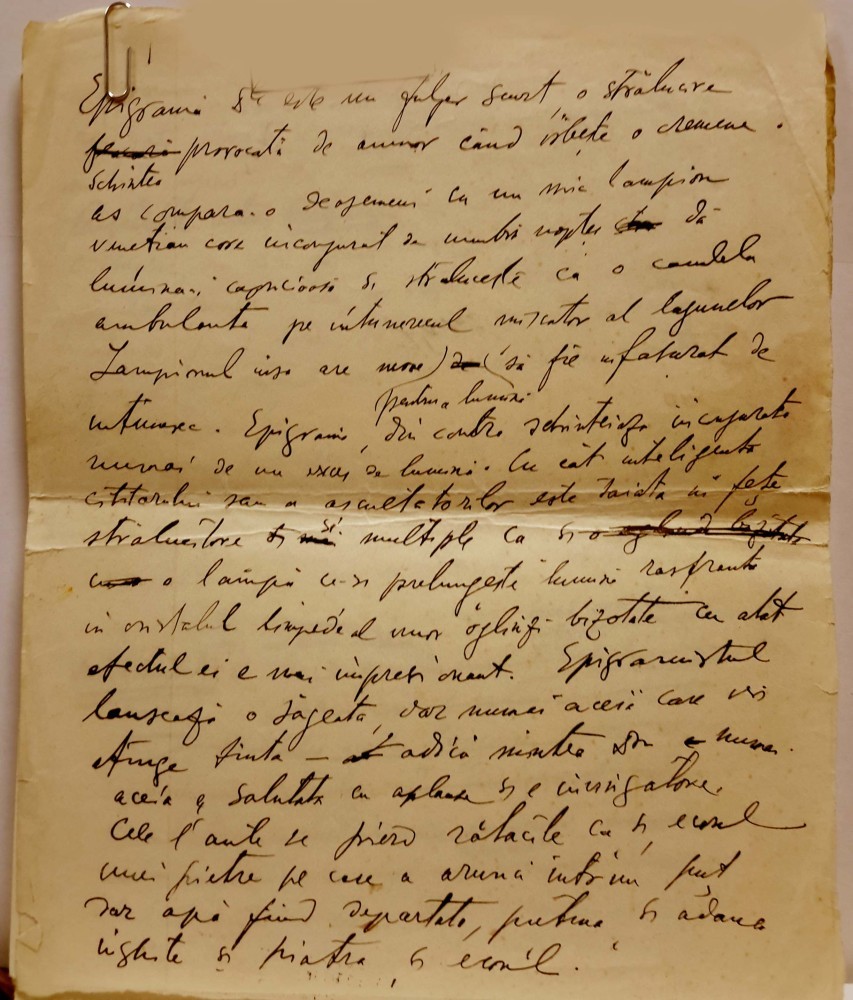 Epigrama este un fulger scurt, o strălucire
provocată de amnar când isbește o cremene.
Schintee
as compara-o deasemeni cu un mic lampion
venetian care inconjurat de umbra noptei dă
lumina-i capricioasa si straluceste ca o candela
ambulanta pe intunerecul miscator al lagunelor
Lampionul insa are nevoe să fie infasurat de
pentru a lumina
intunerec. Epigrama, din contra schinteiaza incojurata
numai de un exces de lumina. Cu cât inteligenta
cititorului sau a ascultatorilor este taiata in fețe
strălucitore si multiple ca si o
o lampa ce-si prelungeste lumina rasfranta
in cristalul limpede al unor oglinzi bizotate cu atât
efectul ei e mai impresionant. Epigramistul
lansează o săgeata, dar numai aceia care
atinge tinta — adică mintea numai
aceia e salutata cu aplauze si e invingatoare.
Cele l'alte se pierd rătăcite ca si ecoul
unei pietre pe care a arunci intr'un puț
dar apa fiind departata, putina si adanca
inghite si piatra si ecoul."